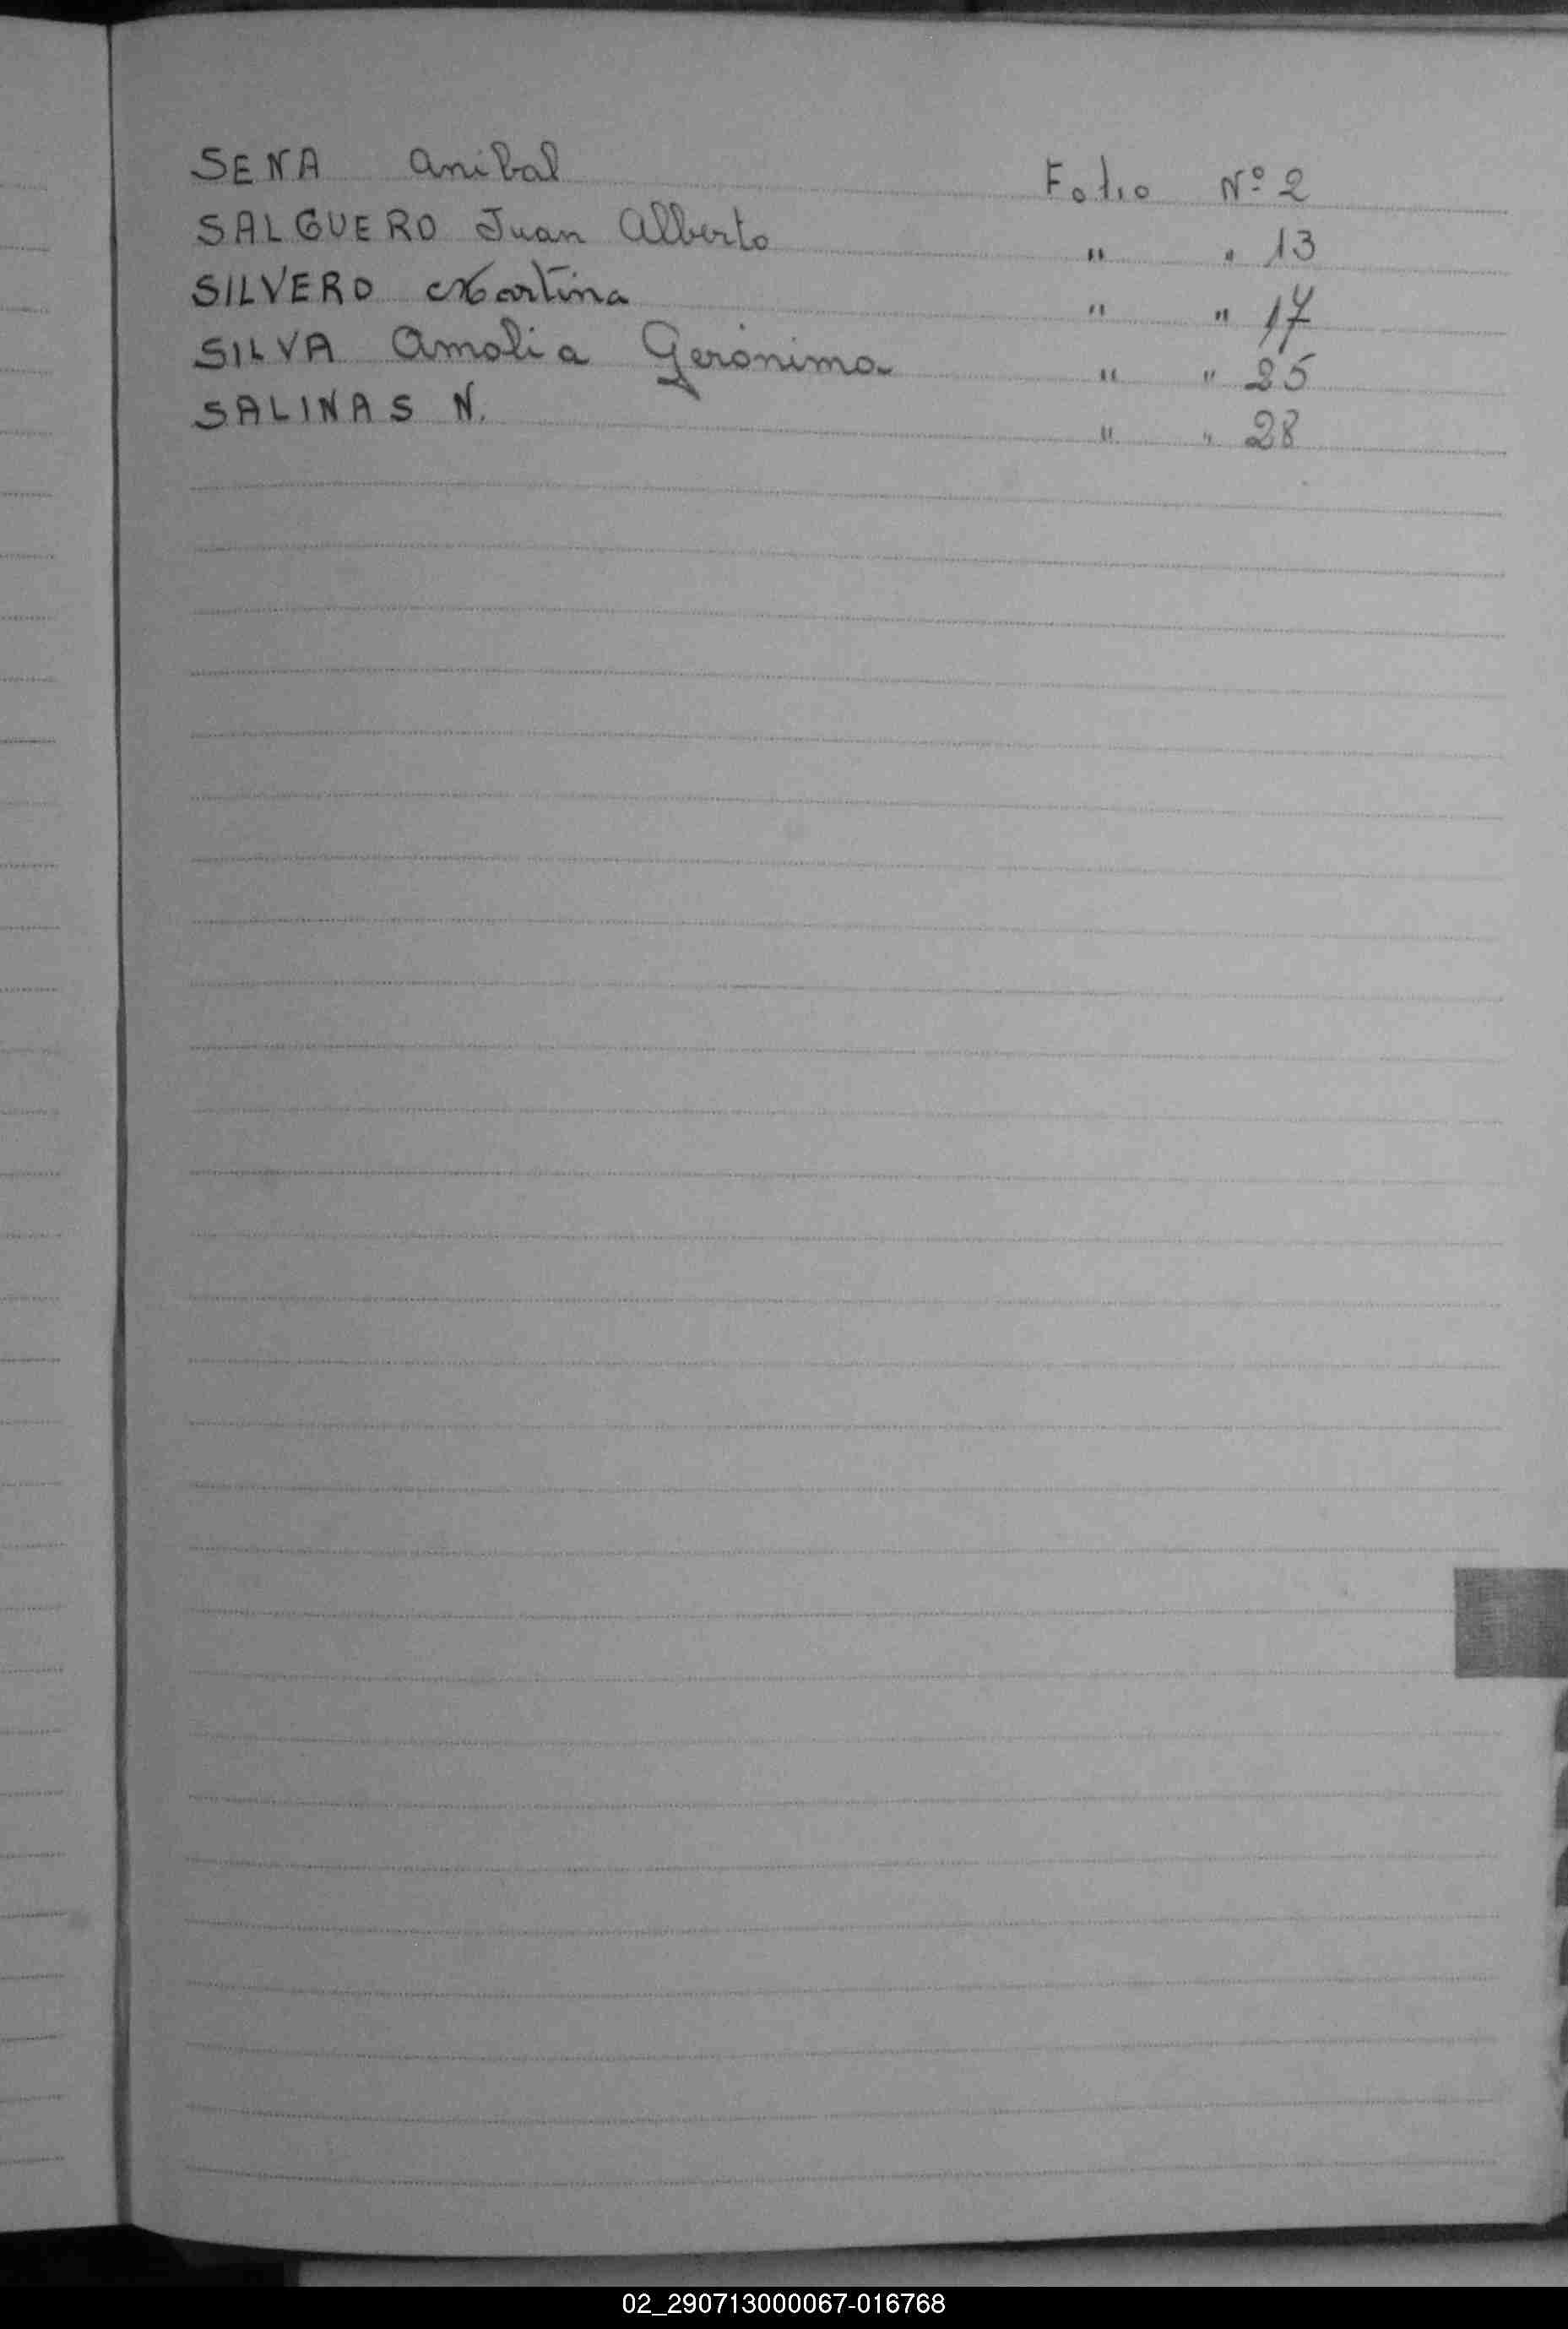 SENA Anibal Folio Nº 2
SALGUERO Juan Alberto " " 13
SILVERO Martina " " 17
SILVA Amalia Gerónima " " 25
SALINAS N. " " 28
02_290713000067-016768